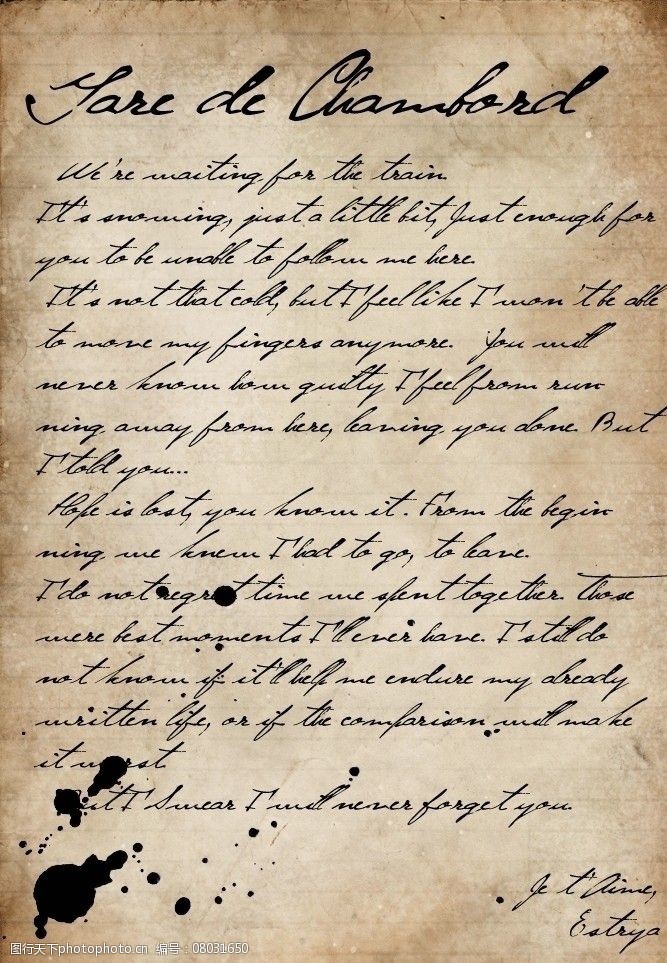 Gare de Chambord
We're waiting for the train.
It's snowing, just a little bit, Just enough for
you to be unable to follow me here.
It's not that cold, but I feel like I won't be able
to move my fingers anymore. You will
never know how guilty I feel from run
ning away from here, leaving you alone. But
I told you...
Hope is lost, you know it. From the begin
ning we knew I had to go, to leave.
I do not regret time we spent together. Those
were best moments I'll ever have. I still do
not know if it'll help me endure my already
written life, or if the comparison will make
it worst
But I Swear I will never forget you.
Je t'Aime,
Estrya
图行天下photophoto.cn 编号:08031650